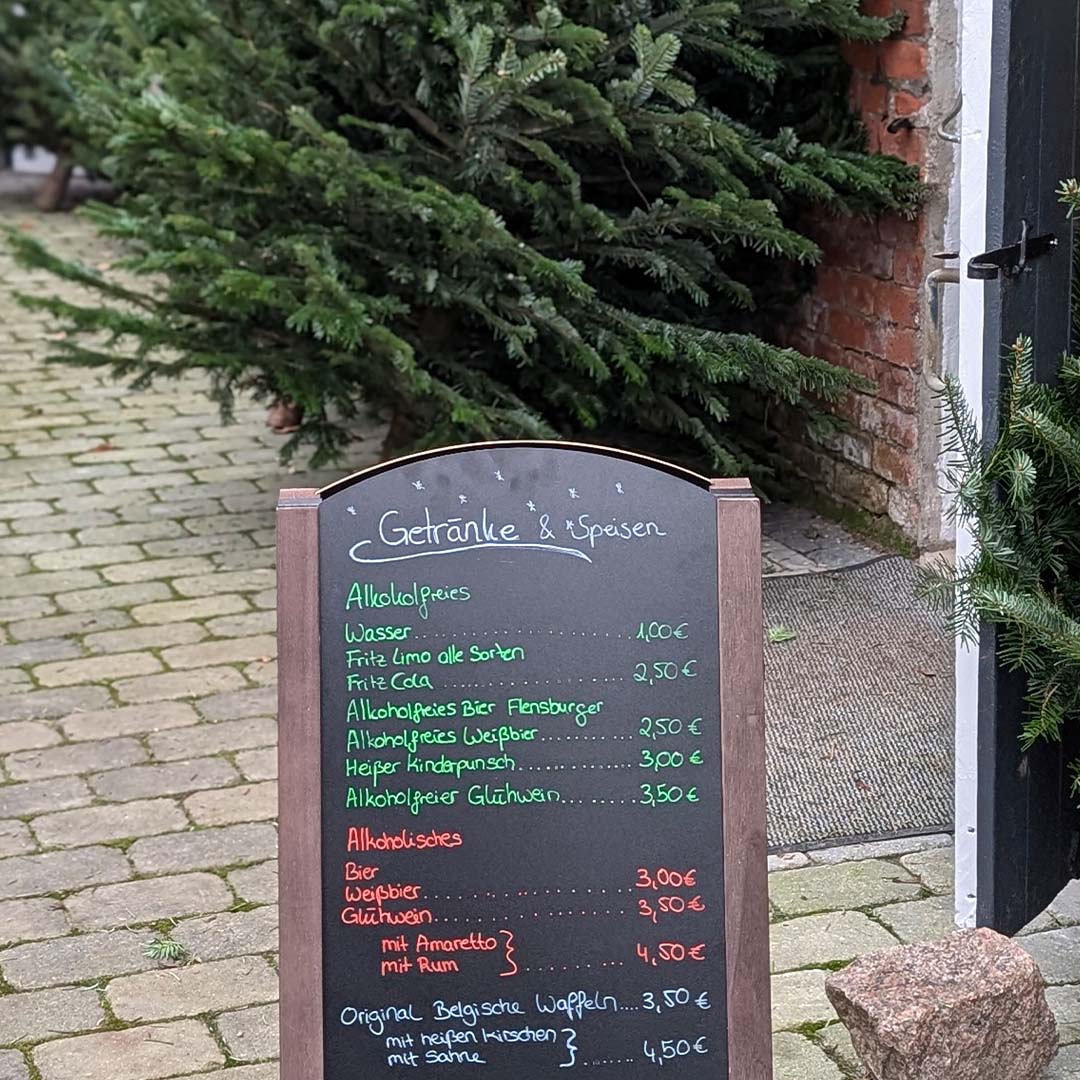 Getränke & Speisen
Alkoholfreies
Wasser.......................1,00€
Fritz Limo alle Sorten
Fritz Cola .....................2,50€
Alkoholfreies Bier Flensburger
Alkoholfreies Weißbier..........2,50€
Heißer Kinderpunsch............3,00€
Alkoholfreier Glühwein........3,50€
Alkoholisches
Bier 3,00€
Weißbier....................
Glühwein....................3,50€
mit Amaretto
mit Rum ..........4,50€
Original Belgische Waffeln....3,50€
mit heißen Kirschen
mit Sahne ........4,50€